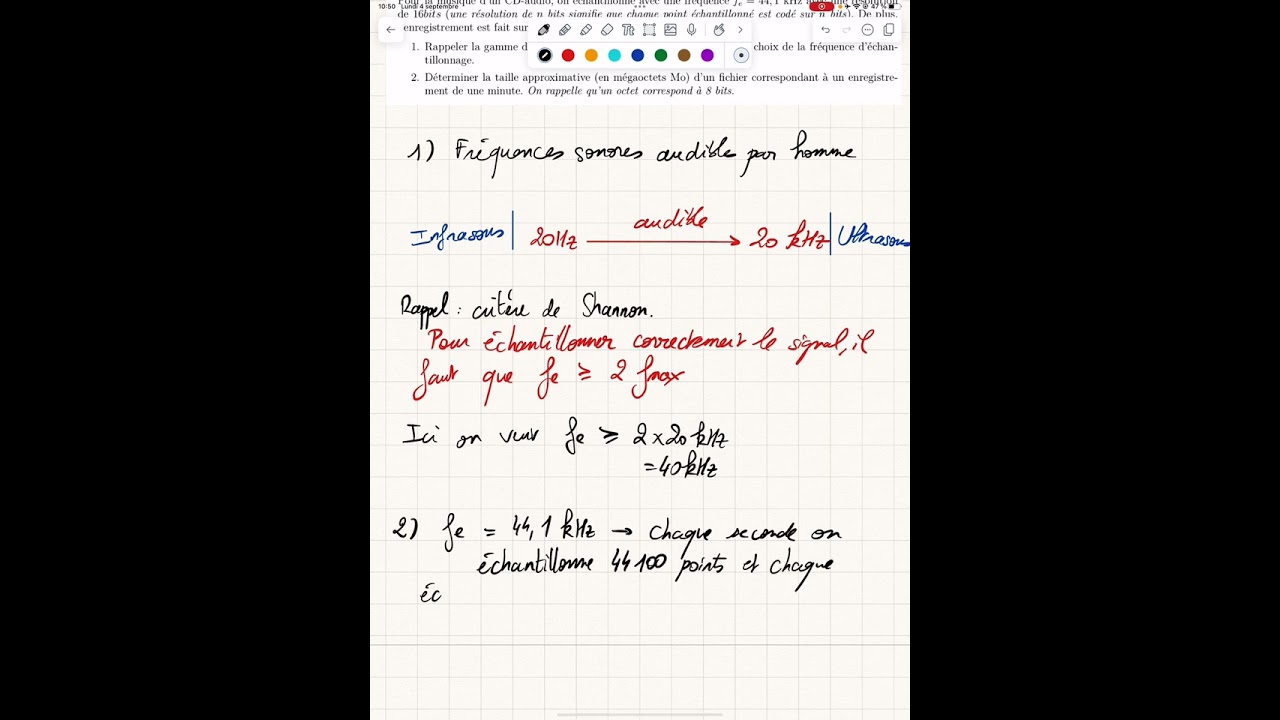 10:50 Lundi 4 septembre 47 %
Pour la musique d'un CD-audio, on échantillonne avec une fréquence fe = 44,1 kHz avec une résolution
de 16bits (une résolution de n bits signifie que chaque point échantillonné est codé sur n bits). De plus,
enregistrement est fait sur
1. Rappeler la gamme d choix de la fréquence d'échan-
tillonnage.
2. Déterminer la taille approximative (en mégaoctets Mo) d'un fichier correspondant à un enregistre-
ment de une minute. On rappelle qu'un octet correspond à 8 bits.
1) Fréquences sonores audible par homme
Infrasons | 20Hz audible 20 kHz | Ultrasons
Rappel : critère de Shannon.
Pour échantillonner correctement le signal, il
faut que fe ≥ 2 fmax
Ici on veut fe ≥ 2 x 20 kHz
= 40 kHz
2) fe = 44,1 kHz → chaque seconde on
échantillonne 44100 points et chaque
éc